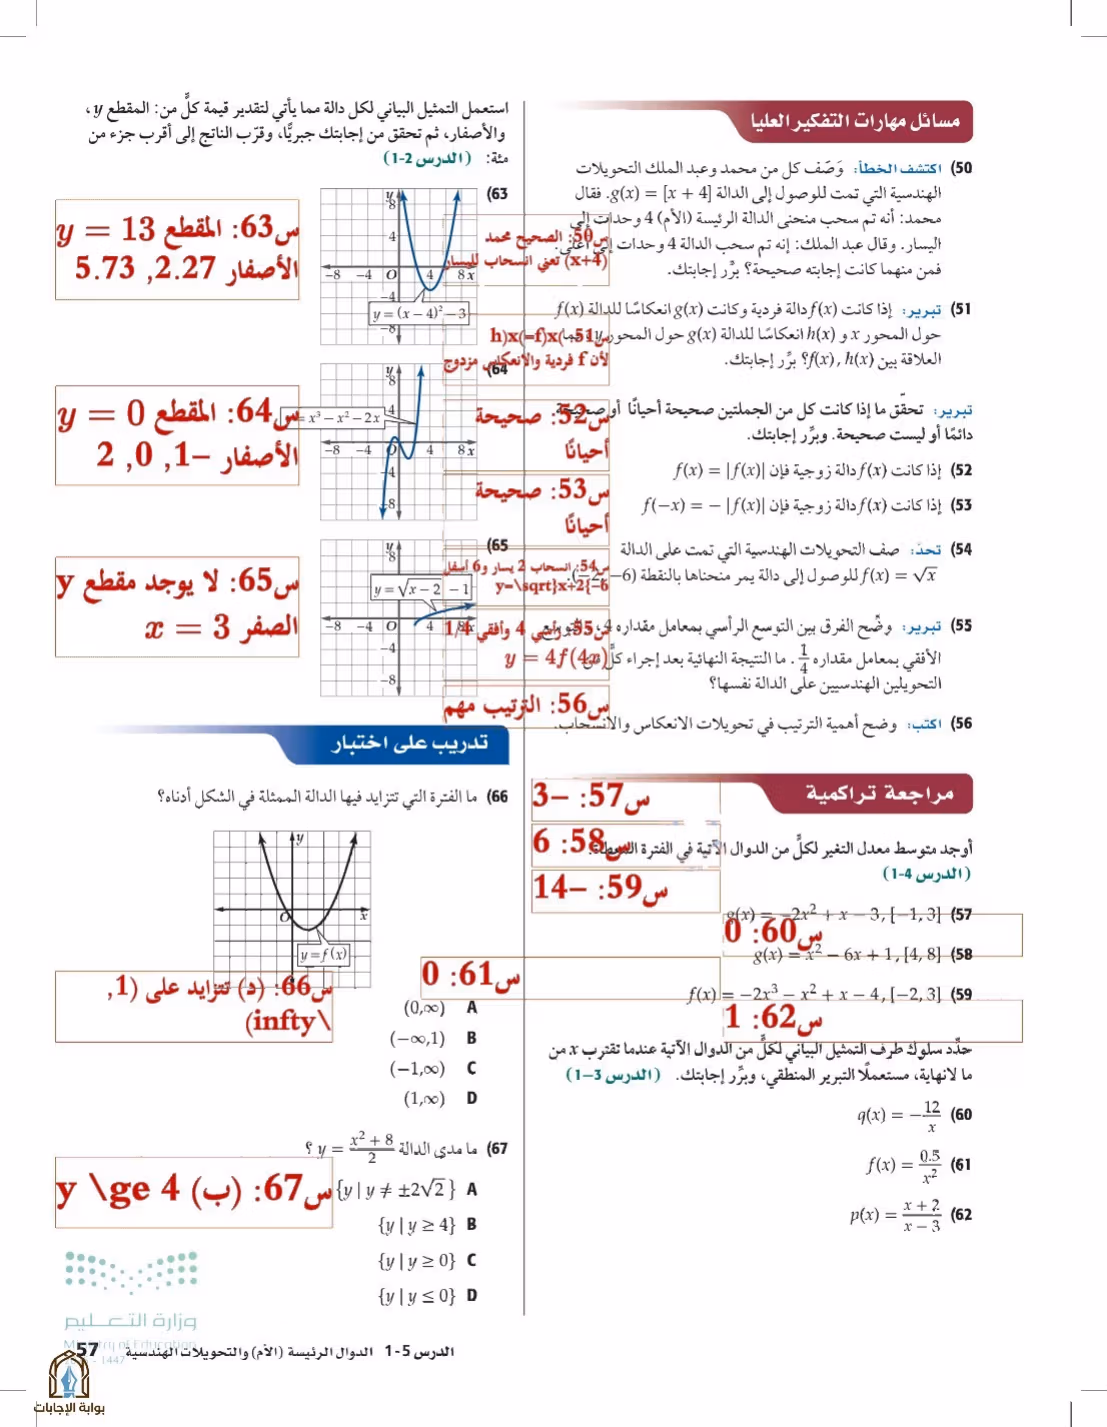 مسائل مهارات التفكير العليا
50) اكتشف الخطأ: وَصَف كل من محمد وعبد الملك التحويلات
الهندسية التي تمت للوصول إلى الدالة g(x) = [x + 4]. فقال
محمد: أنه تم سحب منحنى الدالة الرئيسة (الأم) 4 وحدات إلى
اليسار. وقال عبد الملك: إنه تم سحب الدالة 4 وحدات إلى أعلى.
فمن منهما كانت إجابته صحيحة؟ برِّر إجابتك.
س50: الصحيح محمد
(x+4) تعني انسحاب لليسار
51) تبرير: إذا كانت f(x) دالة فردية وكانت g(x) انعكاسًا للدالة f(x)
حول المحور x و h(x) انعكاسًا للدالة g(x) حول المحور y، فما
العلاقة بين f(x), h(x)؟ برِّر إجابتك.
س51: h)x(=f)x(
لأن f فردية والانعكاس مزدوج
تبرير: تحقّق ما إذا كانت كل من الجملتين صحيحة أحيانًا أو صحيحة
دائمًا أو ليست صحيحة. وبرِّر إجابتك.
س52: صحيحة
أحيانًا
52) إذا كانت f(x) دالة زوجية فإن f(x) = |f(x)|
53) إذا كانت f(x) دالة زوجية فإن f(−x) = − |f(x)|
س53: صحيحة
أحيانًا
54) تحدّ: صف التحويلات الهندسية التي تمت على الدالة
f(x) = √x للوصول إلى دالة يمر منحناها بالنقطة (−2, −6).
س54: انسحاب 2 يسار و6 أسفل
y=\sqrt}x+2{−6
55) تبرير: وضِّح الفرق بين التوسع الرأسي بمعامل مقداره 4، والتوسع
الأفقي بمعامل مقداره 1/4. ما النتيجة النهائية بعد إجراء كلٍّ من
التحويلين الهندسيين على الدالة نفسها؟
س55: رأسي 4 وأفقي 1/4
y = 4f(4x)
56) اكتب: وضح أهمية الترتيب في تحويلات الانعكاس والانسحاب.
س56: الترتيب مهم
مراجعة تراكمية
س57: −3
س58: 6
س59: −14
أوجد متوسط معدل التغير لكلٍّ من الدوال الآتية في الفترة المعطاة:
(الدرس 4-1)
57) g(x) = −2x² + x − 3, [−1, 3]
س60: 0
58) g(x) = x² − 6x + 1, [4, 8]
س61: 0
59) f(x) = −2x³ − x² + x − 4, [−2, 3]
س62: 1
حدِّد سلوك طرف التمثيل البياني لكلٍّ من الدوال الآتية عندما تقترب x من
ما لانهاية، مستعملًا التبرير المنطقي، وبرِّر إجابتك. (الدرس 3-1)
60) q(x) = −12/x
61) f(x) = 0.5/x²
62) p(x) = (x + 2)/(x − 3)
استعمل التمثيل البياني لكل دالة مما يأتي لتقدير قيمة كلٍّ من: المقطع y،
والأصفار، ثم تحقق من إجابتك جبريًّا، وقرّب الناتج إلى أقرب جزء من
مئة: (الدرس 2-1)
63)
y
8
4
−8 −4 O 4 8 x
−4
−8
y = (x − 4)² − 3
س63: المقطع y = 13
الأصفار 2.27, 5.73
64)
y
8
4
−8 −4 O 4 8 x
−4
−8
= x³ − x² − 2x
س64: المقطع y = 0
الأصفار −1, 0, 2
65)
y
8
4
−8 −4 O 4 8x
−4
−8
y = √x − 2 − 1
س65: لا يوجد مقطع y
الصفر x = 3
تدريب على اختبار
66) ما الفترة التي تتزايد فيها الدالة الممثلة في الشكل أدناه؟
y
O x
y = f(x)
س66: (د) تتزايد على (1,
\infty)
A (0,∞)
B (−∞,1)
C (−1,∞)
D (1,∞)
67) ما مدى الدالة y = (x² + 8)/2 ؟
س67: (ب) y \ge 4
A {y | y ≠ ±2√2}
B {y | y ≥ 4}
C {y | y ≥ 0}
D {y | y ≤ 0}
وزارة التعليم
Ministry of Education
1447
الدرس 5-1 الدوال الرئيسة (الأم) والتحويلات الهندسية 57
بوابة الإجابات